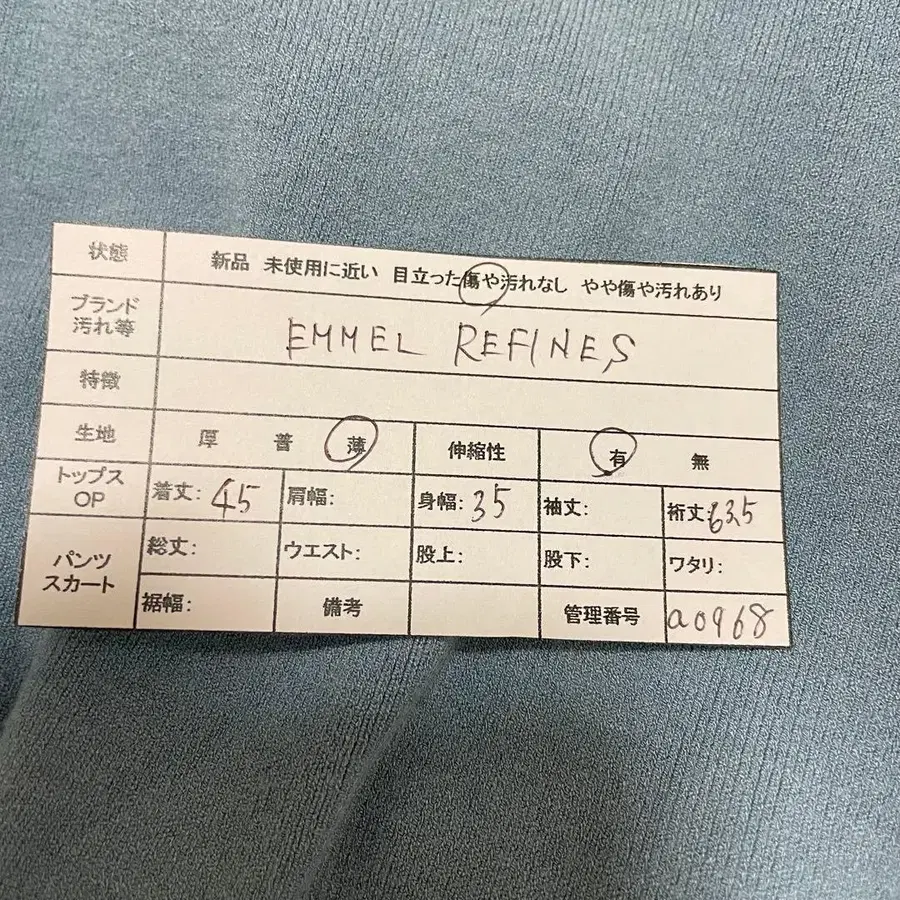 状態 新品 未使用に近い 目立った傷や汚れなし やや傷や汚れあり
ブランド
汚れ等
EMMEL REFINES
特徴
生地 厚 普 薄 伸縮性 有 無
トップス
OP
着丈: 45 肩幅: 身幅: 35 袖丈: 裄丈: 63.5
パンツ
スカート
総丈: ウエスト: 股上: 股下: ワタリ:
裾幅: 備考 管理番号 a0968